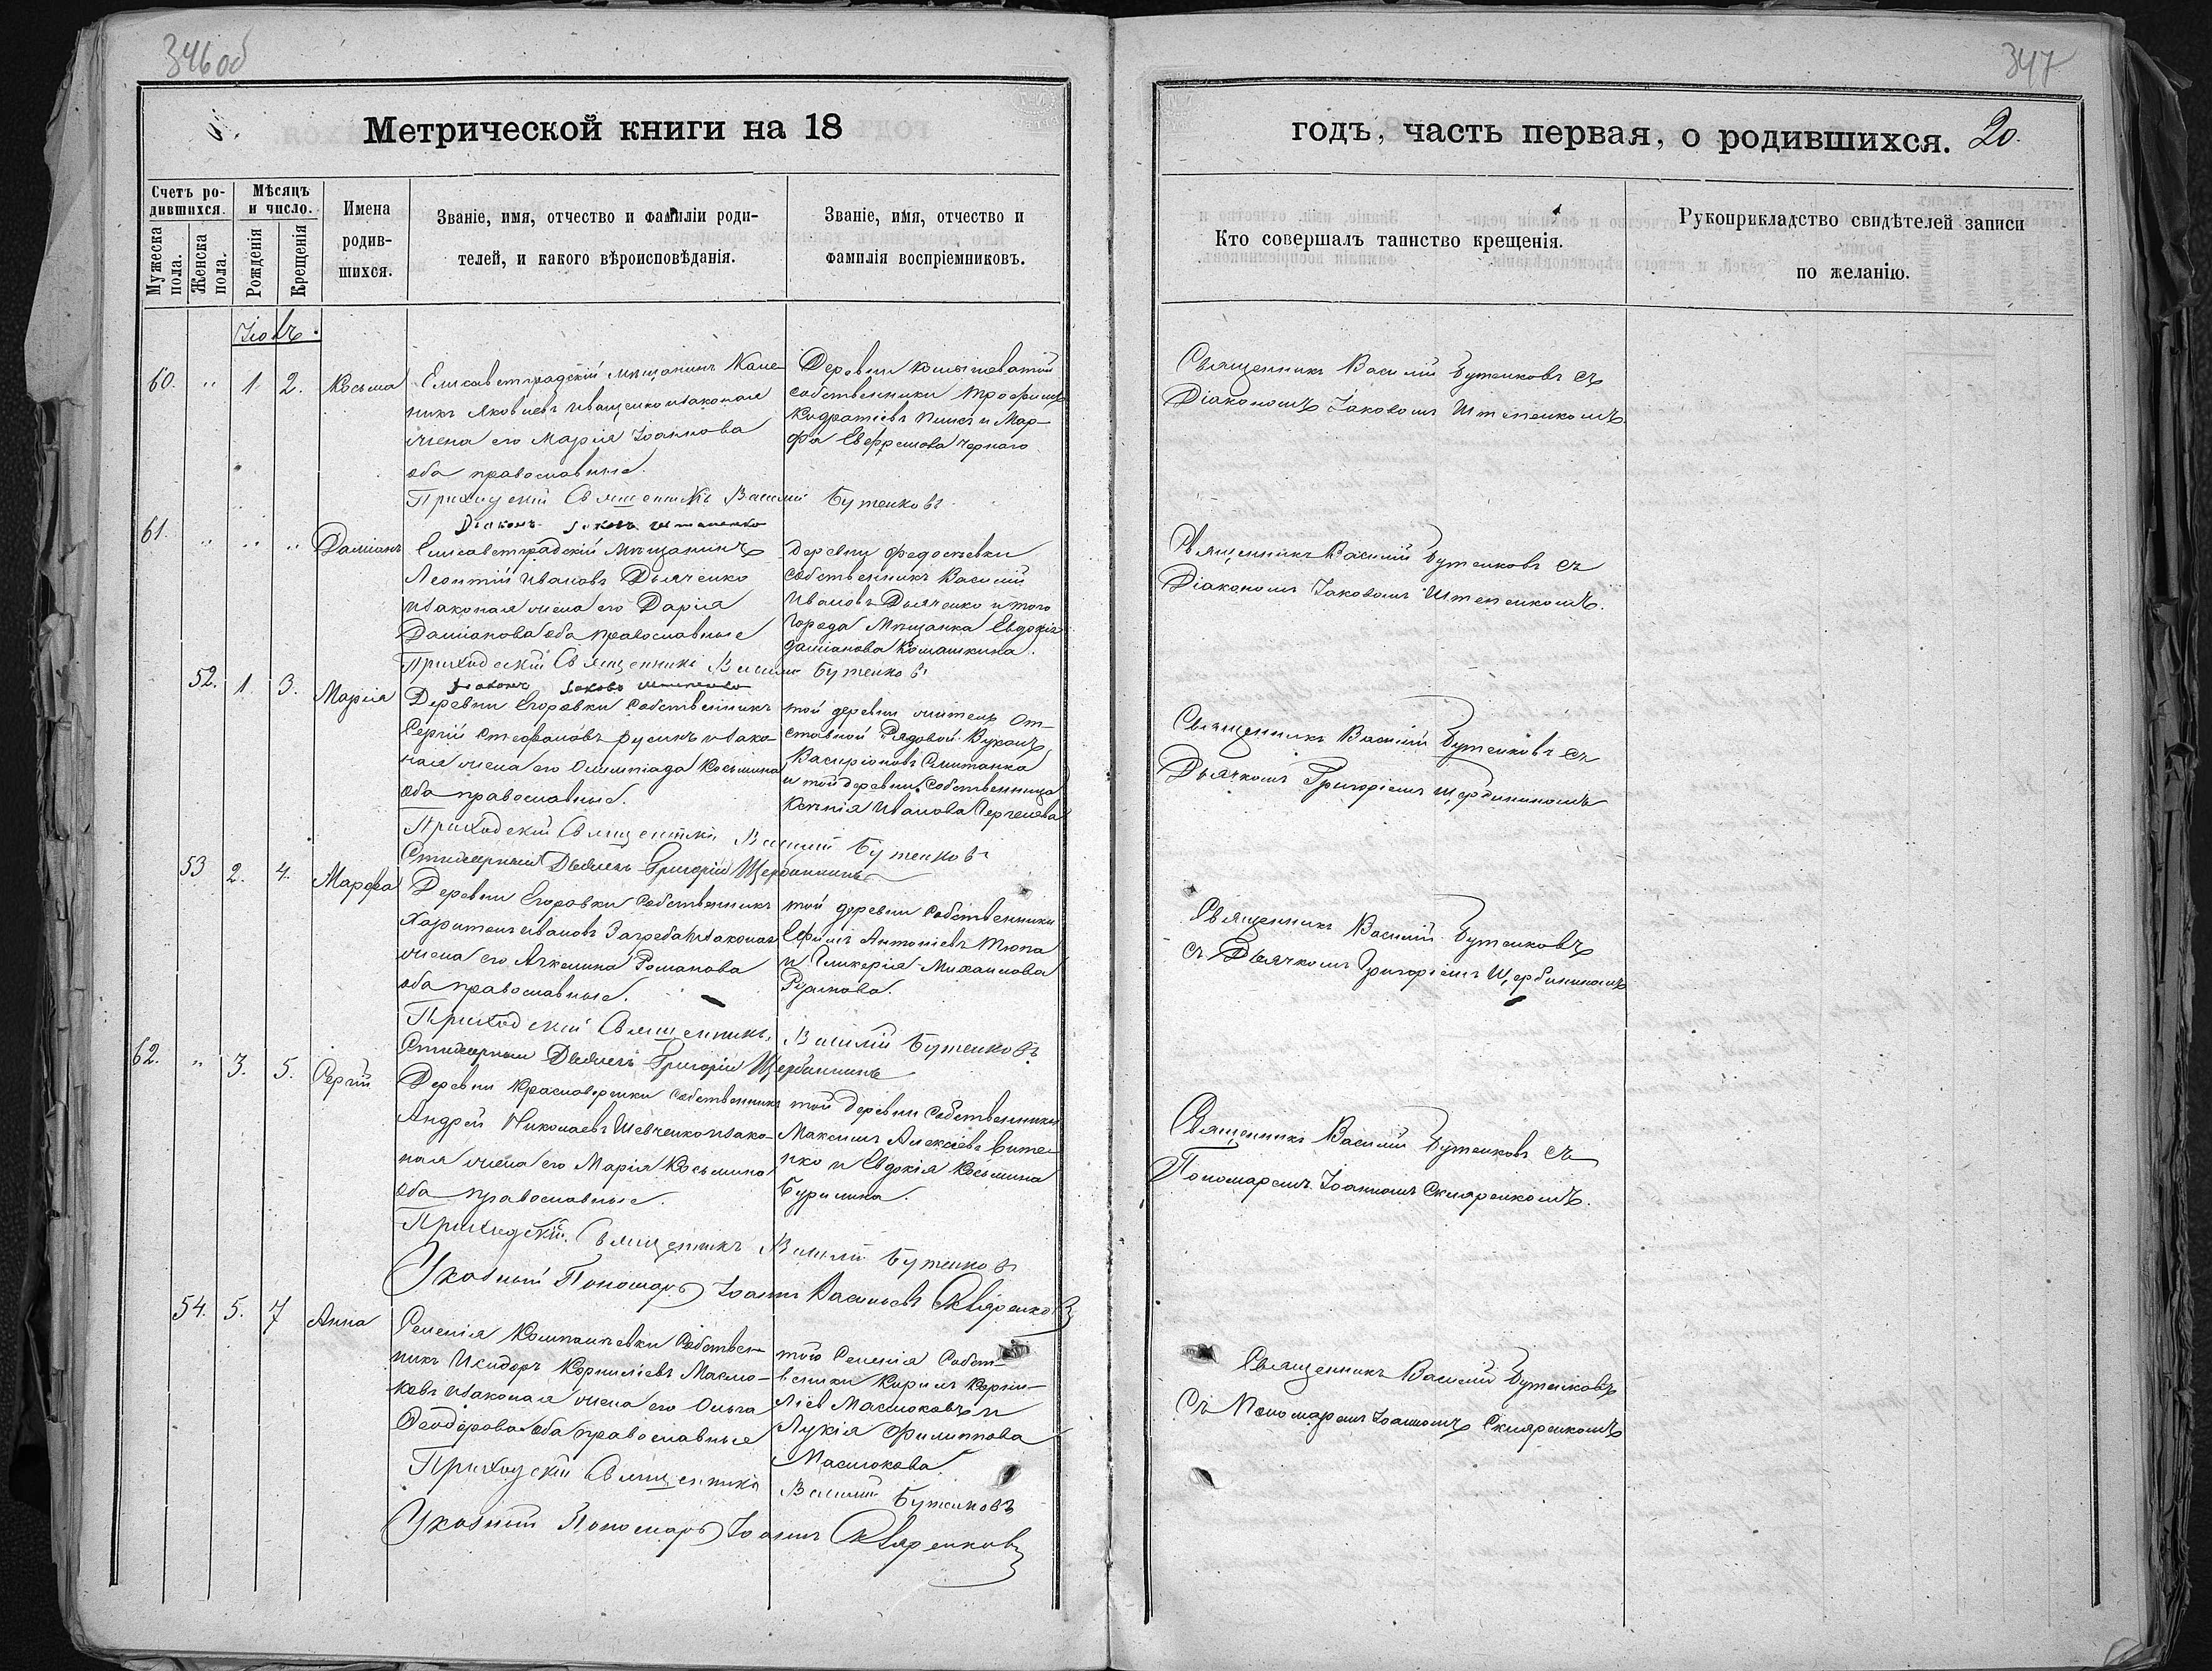 346об
Метрической книги на 18
Счетъ ро-
дившихся.
Мѣсяцъ
и число.
Мужеска
пола.
Женска
пола.
Рожденія
Крещенія
Имена
родив-
шихся.
Званіе, имя, отчество и фамиліи роди-
телей, и какого вѣроисповѣданія.
Званіе, имя, отчество и
фамилія воспріемниковъ.
60. " 1. 2. Косьма
Елисаветградскій мѣщанинъ
Яковлевъ Иващенко и законая
жена его Марія Іоаннова
оба православные.
Деревни
собственники Трофимъ
и Мар-
фа Черного
Приходскій Священникъ Василій Бутенковъ
Діаконъ Іаковъ Штепенко
61. " " " Даміанъ
Елисаветградскій мѣщанинъ
Леонтій Ивановъ Дьяченко
и законая жена его Дарія
Даміанова оба православные
деревни Федосѣевки
собственникъ Василій
Ивановъ Дьяченко и того
города Мѣщанка Евдокія
Даміанова Комашкина.
Приходскій Священникъ Василій Бутенковъ
Діаконъ Іаковъ Штепенко
52. 1. 3. Марія
Деревни Егоровки собственникъ
Сергій Стефановъ Русинъ и зако-
ная жена его Олимпіада Косьмина
оба православные.
той деревни житель От-
ставной Рядовой
и той деревни собственница
Ксенія Иванова
Приходскій Священникъ Василій Бутенковъ
Григорій Щербининъ
53 2. 4. Марфа
Деревни Егоровки собственникъ
Харитонъ Ивановъ Загреба и законая
жена его Романова
оба православные.
той деревни собственники
Ефимъ Антоніевъ Тюпа
и Гликерія Михаилова
Приходскій Священникъ Василій Бутенковъ
Григорій Щербининъ
62. " 3. 5. Сергій
Деревни собственникъ
Андрей Николаевъ Шевченко и зако-
ная жена его Марія Косьмина
оба православные.
той деревни собственники
Максимъ Алексіевъ
и Евдокія Косьмина
Бурилика.
Приходскій Священникъ Василій Бутенковъ
Указный Пономарь Іоаннъ Васильевъ Скляренковъ
54. 5. 7 Анна
Селенія Компанѣевки Собствен-
никъ Исидоръ Корниліевъ Маслю-
ковъ и законая жена его Ольга
Ѳеодорова оба православные
того Селенія Собст-
веники Кирилъ Корни-
ліев Маслюковъ и
Лукія Филиппова
Маслюкова.
Приходскій Священникъ Василій Бутенковъ
Указный Пономарь Іоаннъ Скляренковъ
347
годъ, часть первая, о родившихся. 20.
Кто совершалъ таинство крещенія.
Рукоприкладство свидѣтелей записи
по желанію.
Священникъ Василій Бутенковъ съ
Діакономъ Іаковомъ Штепенкомъ
Священникъ Василій Бутенковъ съ
Діакономъ Іаковомъ Штепенкомъ.
Священникъ Василій Бутенковъ съ
Дьячкомъ Григоріемъ Щербининомъ
Священникъ Василій Бутенковъ
съ Дьячкомъ Григоріемъ Щербининомъ
Священникъ Василій Бутенковъ съ
Пономаремъ Іоанномъ Скляренкомъ.
Священникъ Василій Бутенковъ
Съ Пономаремъ Іоанномъ Скляренкомъ